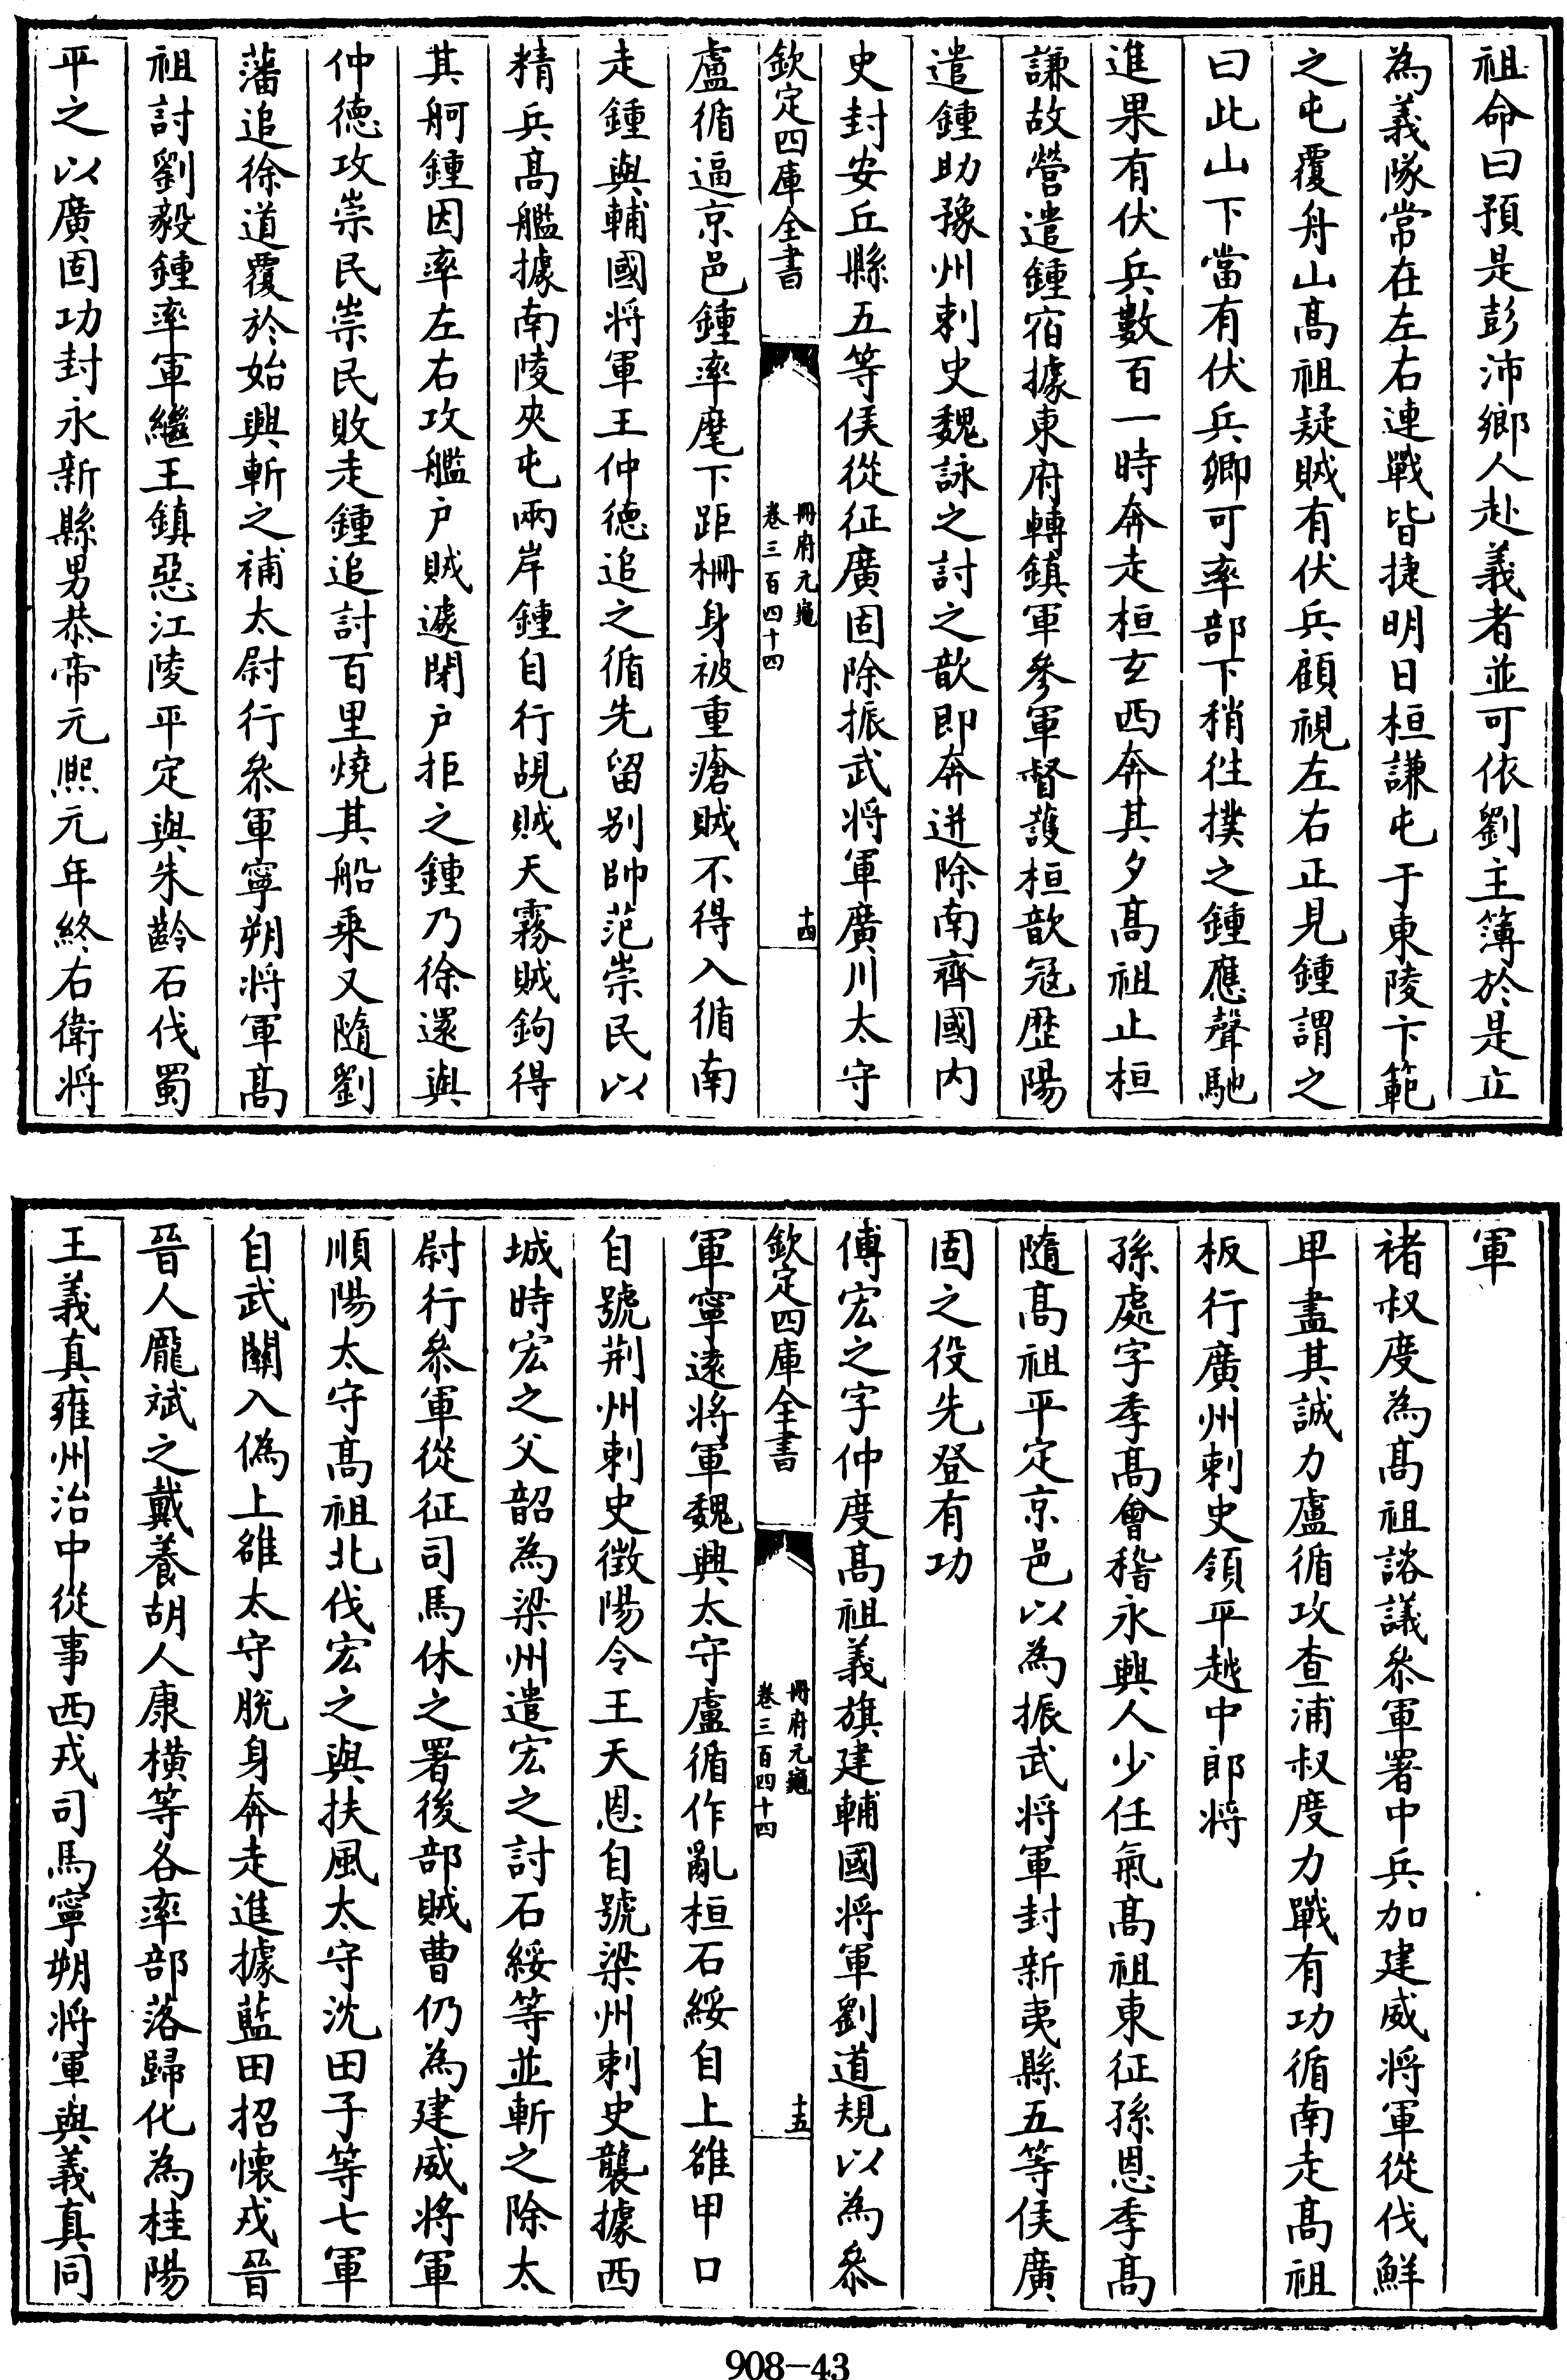 祖命曰預是彭沛鄉人赴義者並可依劉主簿於是立
為義隊常在左右連戰皆捷明日桓謙屯于東陵卞範
之屯覆舟山髙祖疑賊有伏兵顧視左右正見鍾謂之
曰此山下當有伏兵卿可率部下稍徃撲之鍾應聲馳
進果有伏兵數百一時奔走桓玄西奔其夕髙祖止桓
謙故營遣鍾宿據東府轉鎮軍參軍督護桓歆冦歴陽
遣鍾助豫州刺史魏詠之討之歆即奔迸除南齊國内
史封安丘縣五等侯從征廣固除振武將軍廣川太守
欽定四庫全書
冊府元龜
卷三百四十四
十四
盧循逼京邑鍾率麾下距柵身被重瘡賊不得入循南
走鍾與輔國將軍王仲德追之循先留别帥范崇民以
精兵髙艦據南陵夾屯兩岸鍾自行覘賊天霧賊鉤得
其舸鍾因率左右攻艦户賊遽閉户拒之鍾乃徐還與
仲德攻崇民崇民敗走鍾追討百里燒其船乗又隨劉
藩追徐道覆於始興斬之補太尉行叅軍寧朔將軍髙
祖討劉毅鍾率軍繼王鎮惡江陵平定與朱齡石伐蜀
平之以廣固功封永新縣男恭帝元熈元年終右衛將
軍
禇叔度為髙祖諮議叅軍署中兵加建威將軍從伐鮮
卑盡其誠力盧循攻查浦叔度力戰有功循南走髙祖
板行廣州刺史領平越中郎將
孫處字季髙會稽永興人少任氣髙祖東征孫恩季髙
隨髙祖平定京邑以為振武將軍封新夷縣五等侯廣
固之役先登有功
傅宏之字仲度髙祖義旗建輔國將軍劉道規以為叅
欽定四庫全書
冊府元龜
卷三百四十四
十五
軍寧逺將軍魏興太守盧循作亂桓石綏自上雒甲口
自號荆州刺史徴陽令王天恩自號梁州刺史襲據西
城時宏之父韶為梁州遣宏之討石綏等並斬之除太
尉行叅軍從征司馬休之署後部賊曹仍為建威將軍
順陽太守髙祖北伐宏之與扶風太守沈田子等七軍
自武關入偽上雒太守脱身奔走進據藍田招懐戎晉
晉人龎斌之戴養胡人康横等各率部落歸化為桂陽
王義真雍州治中從事西戎司馬寧朔將軍與義真同
908-43